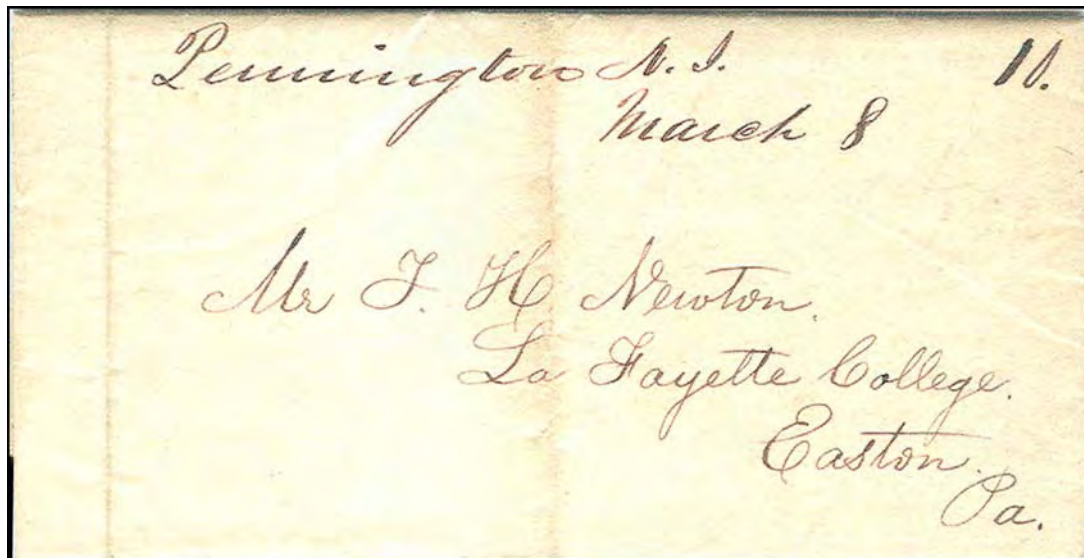 Pennington N. J. 10.
March 8
Mr J. H Newton.
La Fayette College.
Easton.
Pa.